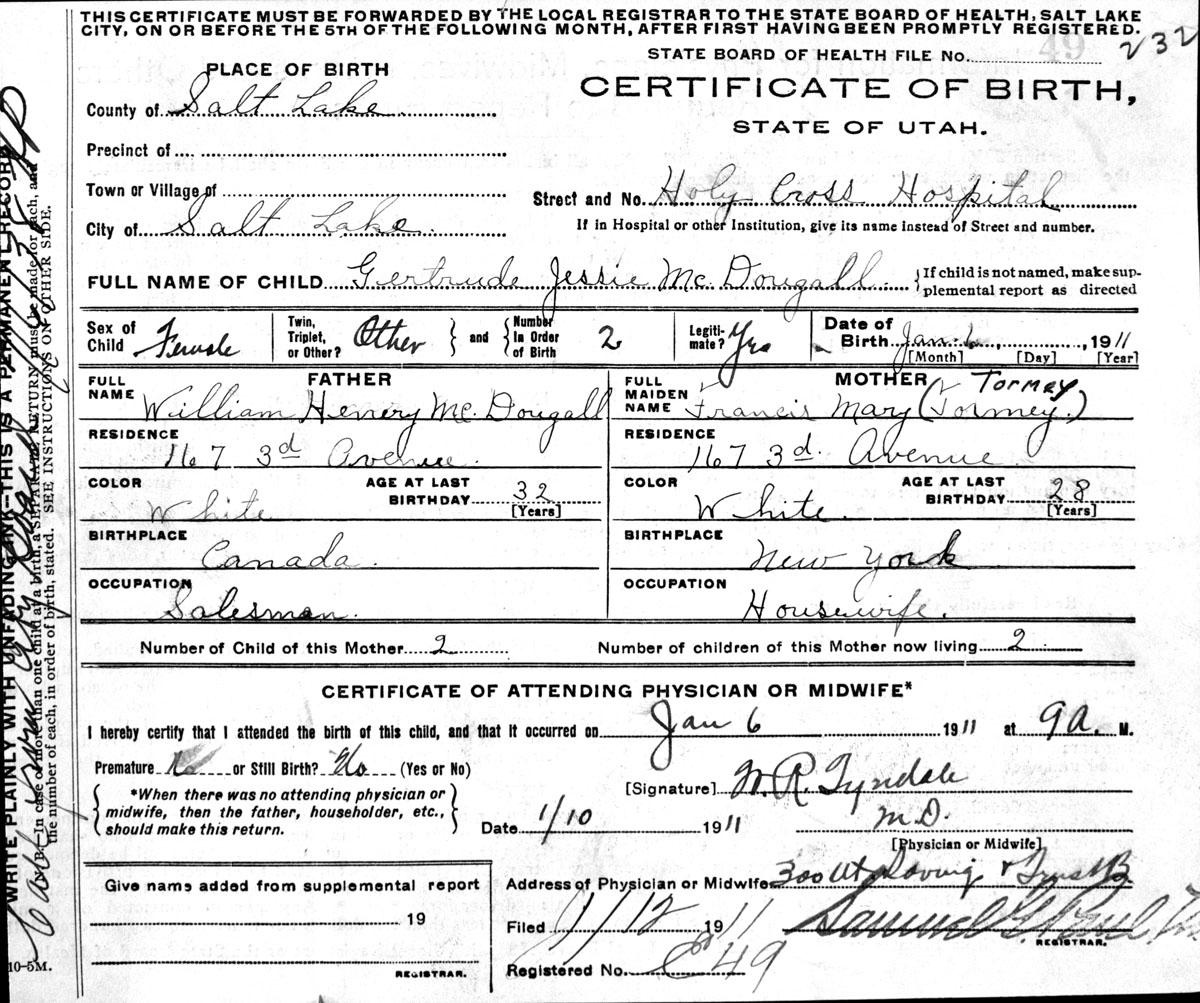 THIS CERTIFICATE MUST BE FORWARDED BY THE LOCAL REGISTRAR TO THE STATE BOARD OF HEALTH, SALT LAKE
CITY, ON OR BEFORE THE 5TH OF THE FOLLOWING MONTH, AFTER FIRST HAVING BEEN PROMPTLY REGISTERED.
STATE BOARD OF HEALTH FILE No. 232
PLACE OF BIRTH
CERTIFICATE OF BIRTH,
STATE OF UTAH.
County of Salt Lake
Precinct of
Town or Village of
City of Salt Lake
Street and No. Holy Cross Hospital
If in Hospital or other Institution, give its name instead of Street and number.
FULL NAME OF CHILD Gertrude Jessie McDougall
{If child is not named, make sup-
plemental report as directed
Sex of Child Female
Twin, Triplet, or Other? Other } and { Number In Order of Birth 2
Legiti-mate? Yes
Date of Birth Jan. 6, 1911
[Month] [Day] [Year]
FATHER
FULL NAME William Henery McDougall
RESIDENCE 167 3d Avenue.
COLOR White
AGE AT LAST BIRTHDAY 32
[Years]
BIRTHPLACE Canada.
OCCUPATION Salesman.
MOTHER
FULL MAIDEN NAME Francis Mary (Tormey.)
Tormey
RESIDENCE 167 3d. Avenue.
COLOR White.
AGE AT LAST BIRTHDAY 28
[Years]
BIRTHPLACE New York
OCCUPATION Housewife.
Number of Child of this Mother 2
Number of children of this Mother now living 2
CERTIFICATE OF ATTENDING PHYSICIAN OR MIDWIFE*
I hereby certify that I attended the birth of this child, and that it occurred on Jan 6 1911 at 9a. M.
Premature No or Still Birth? No (Yes or No)
{ *When there was no attending physician or
midwife, then the father, householder, etc.,
should make this return. }
[Signature] W. R. Tyndale
M.D.
[Physician or Midwife]
Date 1/10 1911
Address of Physician or Midwife 300 Ut Saving & Trust B
Give name added from supplemental report
19
REGISTRAR.
Filed 1/12 1911
Samuel G. Paul
REGISTRAR.
Registered No. 49
10-5M.
WRITE PLAINLY WITH UNFADING INK—THIS IS A PERMANENT RECORD
N. B.—In case of more than one child at a birth, a SEPARATE RETURN must be made for each, and
the number of each, in order of birth, stated. SEE INSTRUCTIONS ON OTHER SIDE.
49